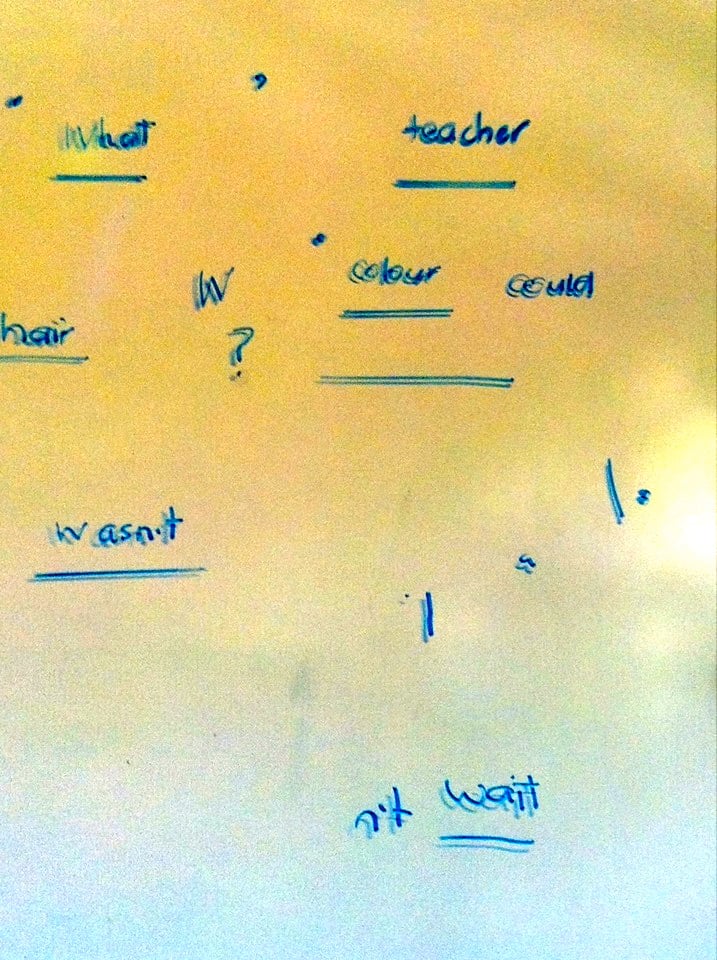 What teacher
W colour could
hair ?
wasn't
n't wait